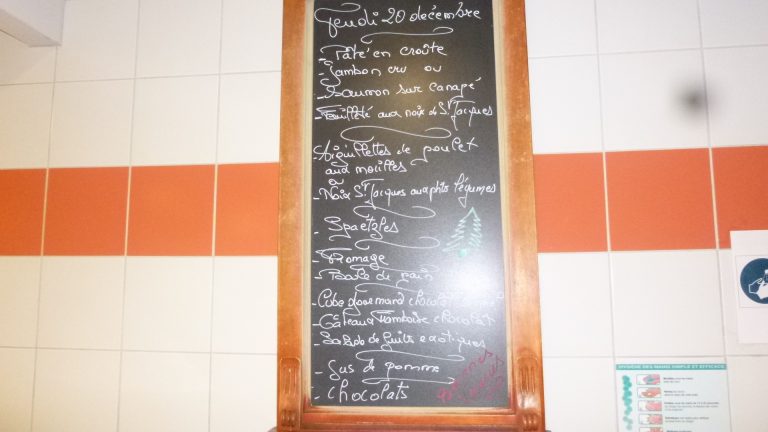 Jeudi 20 décembre
- Pâté en croûte
- Jambon cru ou
- Saumon sur canapé
- Feuilleté aux noix de St Jacques
- Aiguillettes de poulet
aux morilles
ou
- Noix St Jacques aux ptits légumes
- Spaetzles
- Fromage
- Boule de pain
- Cube gourmand chocolat
- Gâteau framboise chocolat
- Salade de fruits exotiques
- Jus de pomme
- chocolats
HYGIÈNE DES MAINS SIMPLE ET EFFICACE